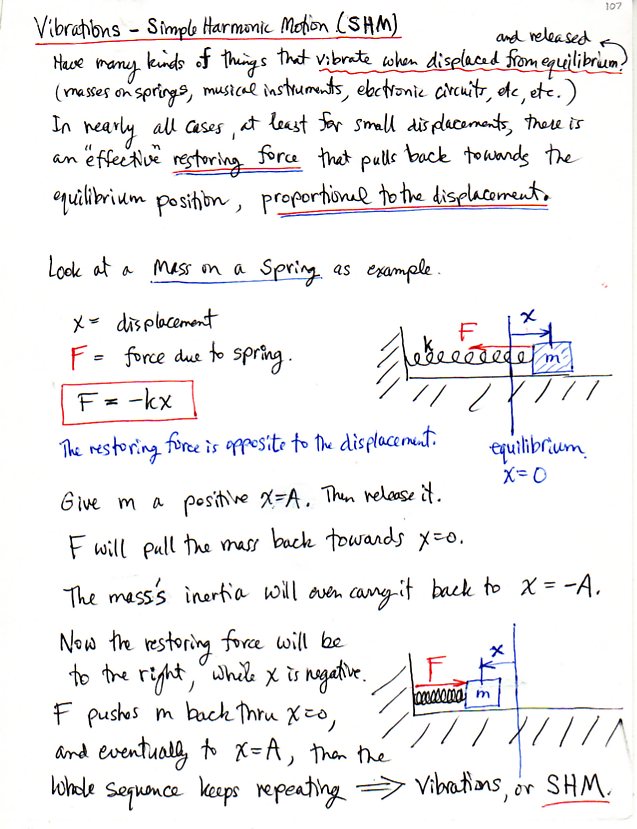 107
Vibrations - Simple Harmonic Motion (SHM)
and released
Have many kinds of things that vibrate when displaced from equilibrium.
(masses on springs, musical instruments, electronic circuits, etc, etc.)
In nearly all cases, at least for small displacements, there is
an "effective" restoring force that pulls back towards the
equilibrium position, proportional to the displacement.
Look at a Mass on a Spring as example.
x = displacement
F = force due to spring.
F = -kx
k
F
x
m
The restoring force is opposite to the displacement.
equilibrium
x=0
Give m a positive x=A. Then release it.
F will pull the mass back towards x=0.
The mass's inertia will even carry it back to x = -A.
Now the restoring force will be
to the right, while x is negative.
F pushes m back thru x=0,
and eventually to x=A, then the
whole sequence keeps repeating ⟹ Vibrations, or SHM.
F
x
m